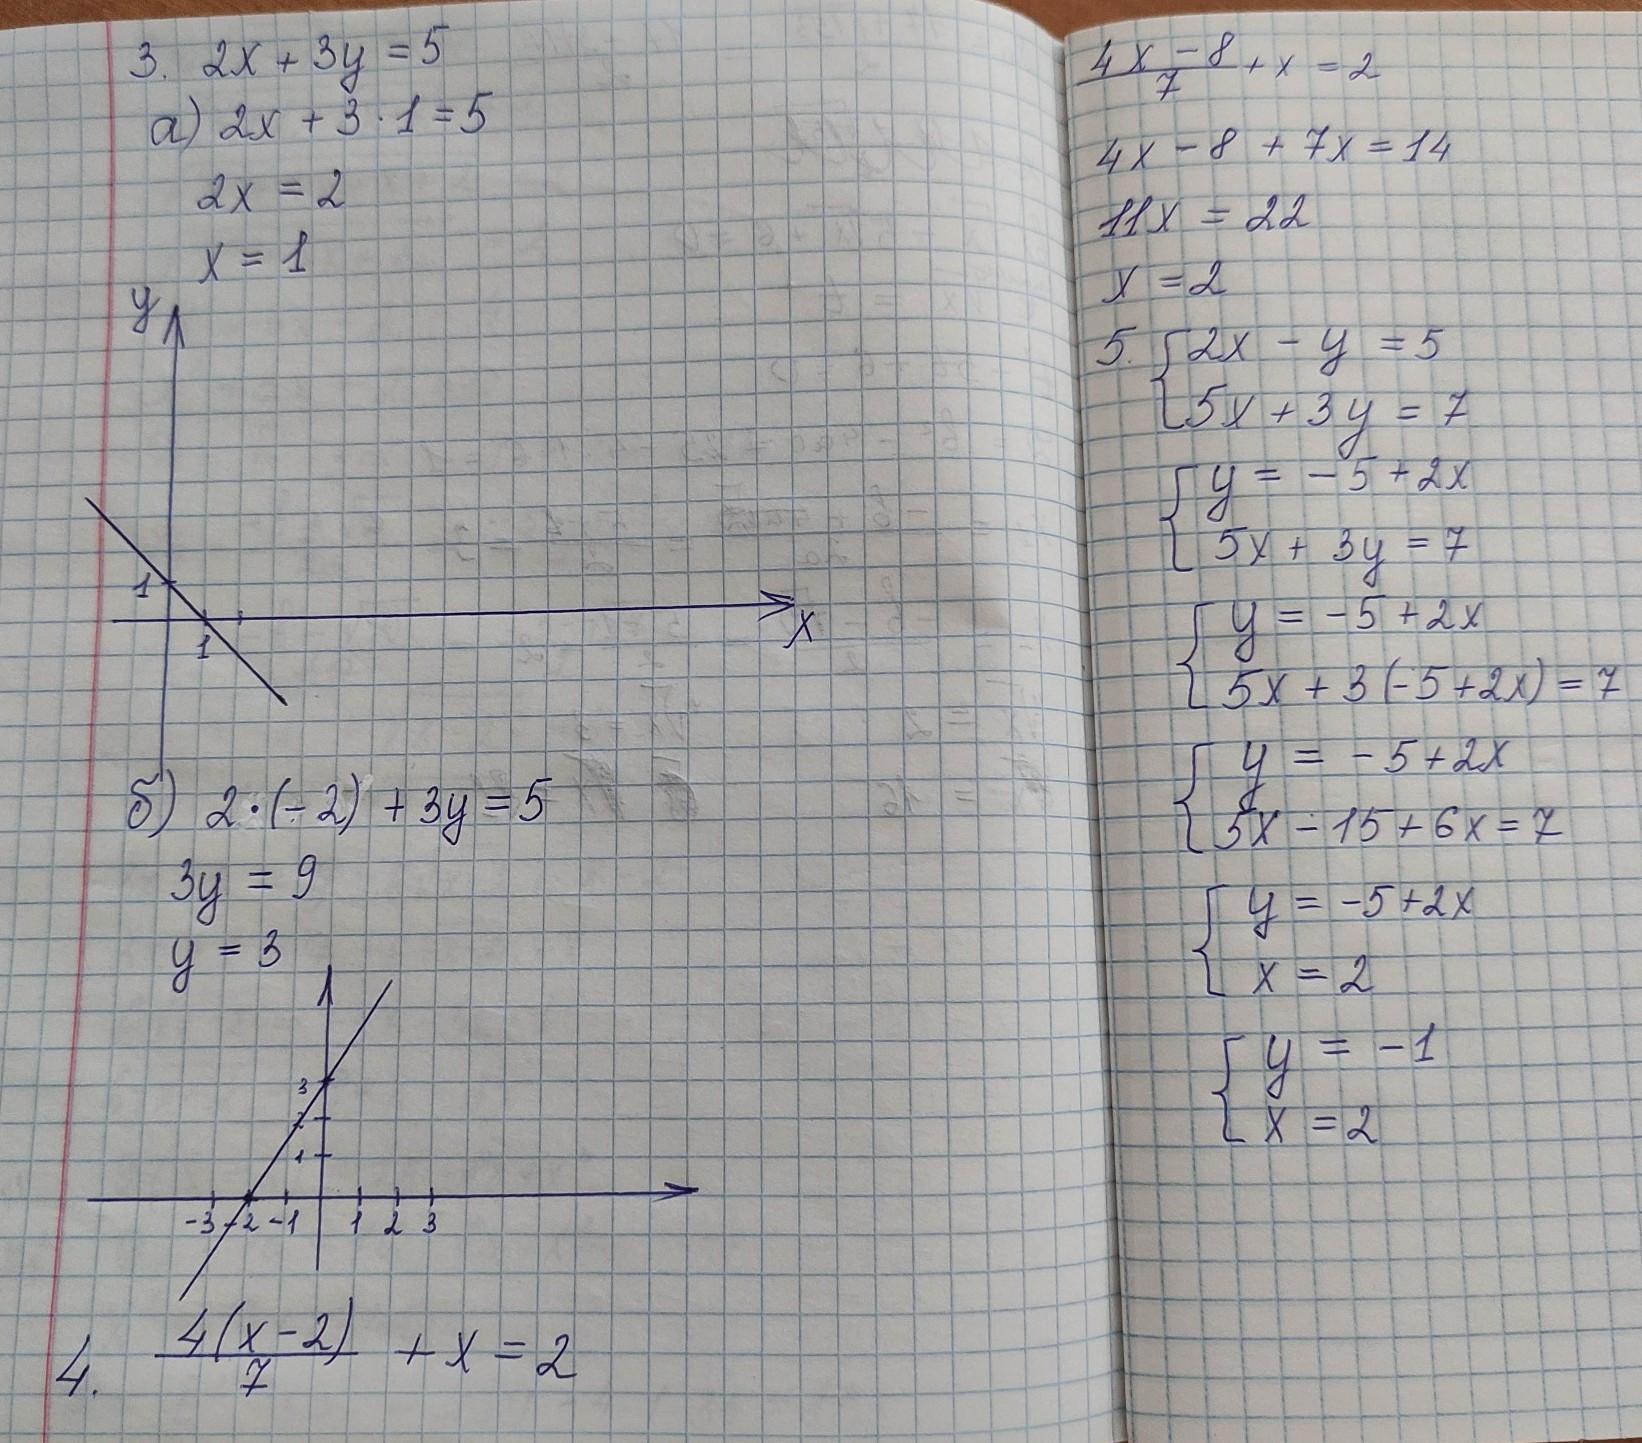 3. 2x + 3y = 5
а) 2x + 3 · 1 = 5
2x = 2
x = 1
y
1
1
x
б) 2 · (-2) + 3y = 5
3y = 9
y = 3
3
2
1
-3 -2 -1 1 2 3
4. \frac{4(x-2)}{7} + x = 2
\frac{4x-8}{7} + x = 2
4x - 8 + 7x = 14
11x = 22
x = 2
5. { 2x - y = 5
5x + 3y = 7
{ y = -5 + 2x
5x + 3y = 7
{ y = -5 + 2x
5x + 3(-5 + 2x) = 7
{ y = -5 + 2x
5x - 15 + 6x = 7
{ y = -5 + 2x
x = 2
{ y = -1
x = 2